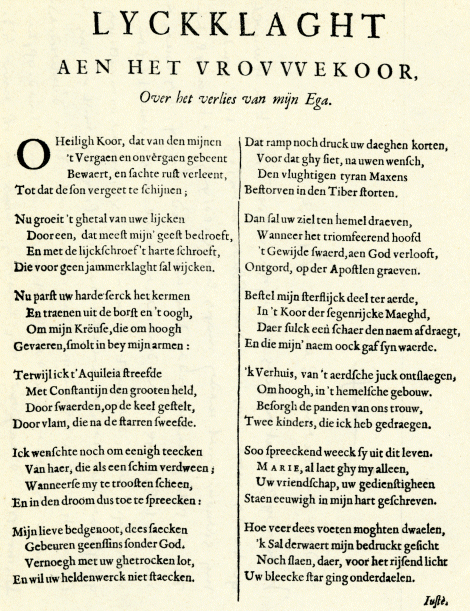 LYCKKLAGHT
AEN HET VROVVVEKOOR,
Over het verlies van mijn Ega.
O Heiligh Koor, dat van den mijnen
't Vergaen en onvergaen gebeent
Bewaert, en sachte rust verleent,
Tot dat de son vergeet te schijnen;
Nu groeit 't ghetal van uwe lijcken
Door een, dat meest mijn' geest bedroeft,
En met de lijckschroef 't harte schroeft,
Die voor geen jammerklaght sal wijcken.
Nu parst uw harde serck het kermen
En traenen uit de borst en 't oogh,
Om mijn Krëuse, die om hoogh
Gevaeren, smolt in bey mijn armen:
Terwijl ick t'Aquileia streefde
Met Constantijn den grooten held,
Door swaerden, op de keel gestelt,
Door vlam, die na de starren sweefde.
Ick wenschte noch om eenigh teecken
Van haer, die als een schim verdween;
Wanneerse my te troosten scheen,
En in den droom dus toe te spreecken:
Mijn lieve bedgenoot, dees saecken
Gebeuren geensins sonder God.
Vernoegh met uw ghetrocken lot,
En wil uw heldenwerck niet staecken.
Dat ramp noch druck uw daeghen korten,
Voor dat ghy siet, na uwen wensch,
Den vlughtigen tyran Maxens
Bestorven in den Tiber storten.
Dan sal uw ziel ten hemel draeven,
Wanneer het triomfeerend hoofd
't Gewijde swaerd, aen God verlooft,
Ontgord, op der Apostlen graeven.
Bestel mijn sterflijck deel ter aerde,
In 't Koor der segenrijcke Maeghd,
Daer sulck een schaer den naem af draegt,
En die mijn' naem oock gaf syn waerde.
'k Verhuis, van 't aerdsche juck ontslaegen,
Om hoogh, in 't hemelsche gebouw.
Besorgh de panden van ons trouw,
Twee kinders, die ick heb gedraegen.
Soo spreeckend weeck sy uit dit leven.
MARIE, al laet ghy my alleen,
Uw vriendschap, uw gedienstigheen
Staen eeuwigh in mijn hart geschreven.
Hoe veer dees voeten moghten dwaelen,
'k Sal derwaert mijn bedruckt gesicht
Noch slaen, daer, voor het rijsend licht
Uw bleecke star ging onderdaelen.
Iustè.